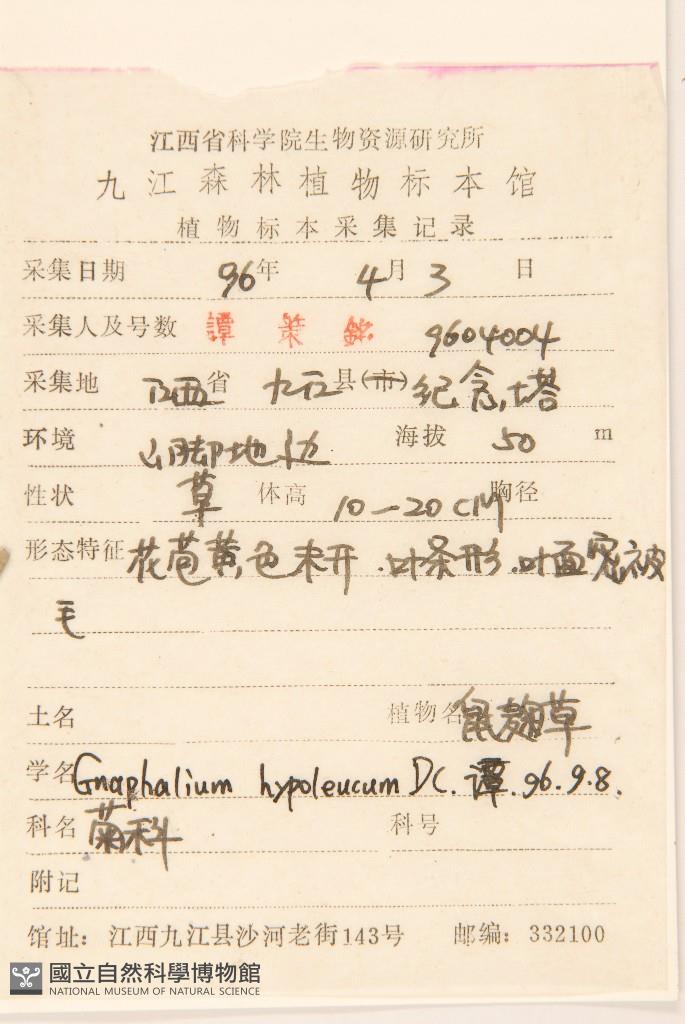 江西省科学院生物资源研究所
九江森林植物标本馆
植物标本采集记录
采集日期 96年 4月 3 日
采集人及号数 譚策銘 9604004
采集地 江西省 九江县(市) 纪念塔
环境 山脚地边 海拔 50 m
性状 草 体高 10—20CM 胸径
形态特征 花苞黄色未开.叶条形.叶面密被
毛
土名 植物名 鼠麹草
学名 Gnaphalium hypoleucum DC. 谭.96.9.8.
科名 菊科 科号
附记
馆址：江西九江县沙河老街143号 邮编：332100
國立自然科學博物館
NATIONAL MUSEUM OF NATURAL SCIENCE